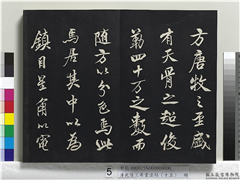 方唐牧之至盛
有天骨之超俊
勒四十万之數而
随方以分色焉此
馬居其中以為
鎮目星角以電
5